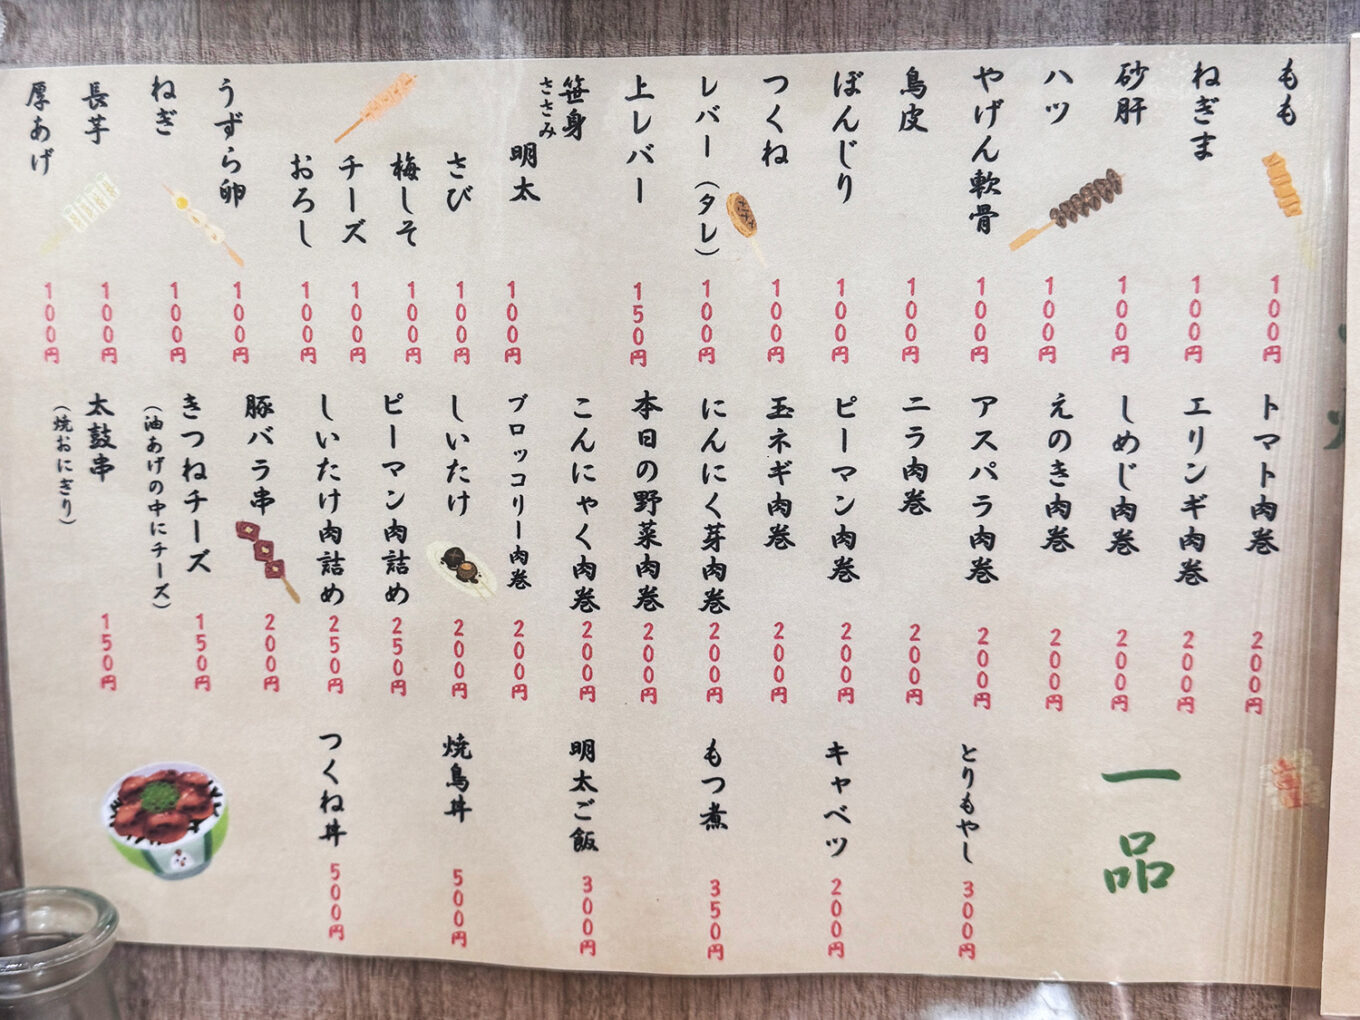 もも 100円
ねぎま 100円
砂肝 100円
ハツ 100円
やげん軟骨 100円
鳥皮 100円
ぼんじり 100円
つくね 100円
レバー（タレ） 100円
上レバー 150円
笹身
ささみ
明太 100円
さび 100円
梅しそ 100円
チーズ 100円
おろし 100円
うずら卵 100円
ねぎ 100円
長芋 100円
厚あげ 100円
トマト肉巻 200円
エリンギ肉巻 200円
しめじ肉巻 200円
えのき肉巻 200円
アスパラ肉巻 200円
ニラ肉巻 200円
ピーマン肉巻 200円
玉ネギ肉巻 200円
にんにく芽肉巻 200円
本日の野菜肉巻 200円
こんにゃく肉巻 200円
ブロッコリー肉巻 200円
しいたけ 200円
ピーマン肉詰め 250円
しいたけ肉詰め 250円
豚バラ串 200円
きつねチーズ 150円
（油あげの中にチーズ）
太鼓串 150円
（焼おにぎり）
一品
とりもやし 300円
キャベツ 200円
もつ煮 350円
明太ご飯 300円
焼鳥丼 500円
つくね丼 500円